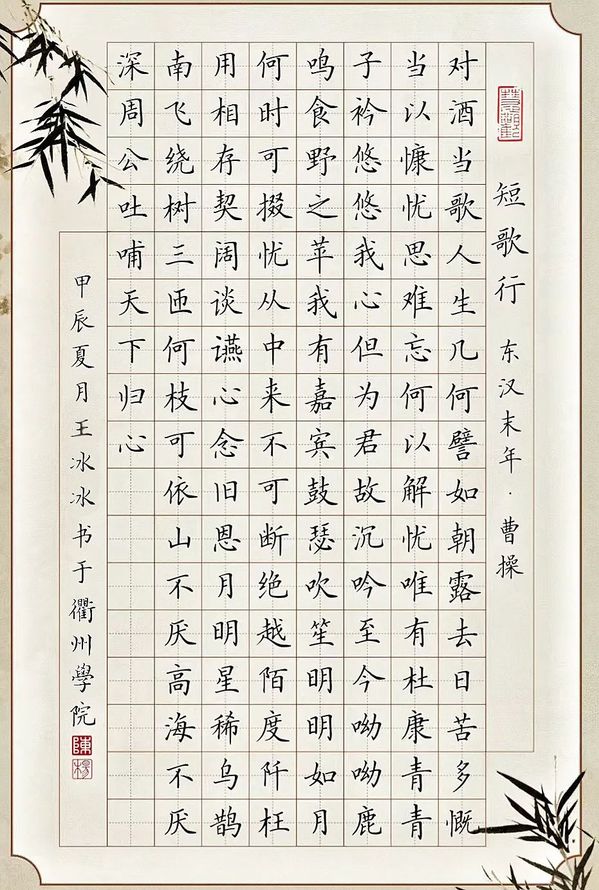 短歌行 东汉末年·曹操
对酒当歌人生几何譬如朝露去日苦多慨
当以慷忧思难忘何以解忧唯有杜康青青
子衿悠悠我心但为君故沉吟至今呦呦鹿
鸣食野之苹我有嘉宾鼓瑟吹笙明明如月
何时可掇忧从中来不可断绝越陌度阡枉
用相存契阔谈䜩心念旧恩月明星稀乌鹊
南飞绕树三匝何枝可依山不厌高海不厌
深周公吐哺天下归心
甲辰夏月王冰冰书于衢州學院
陳